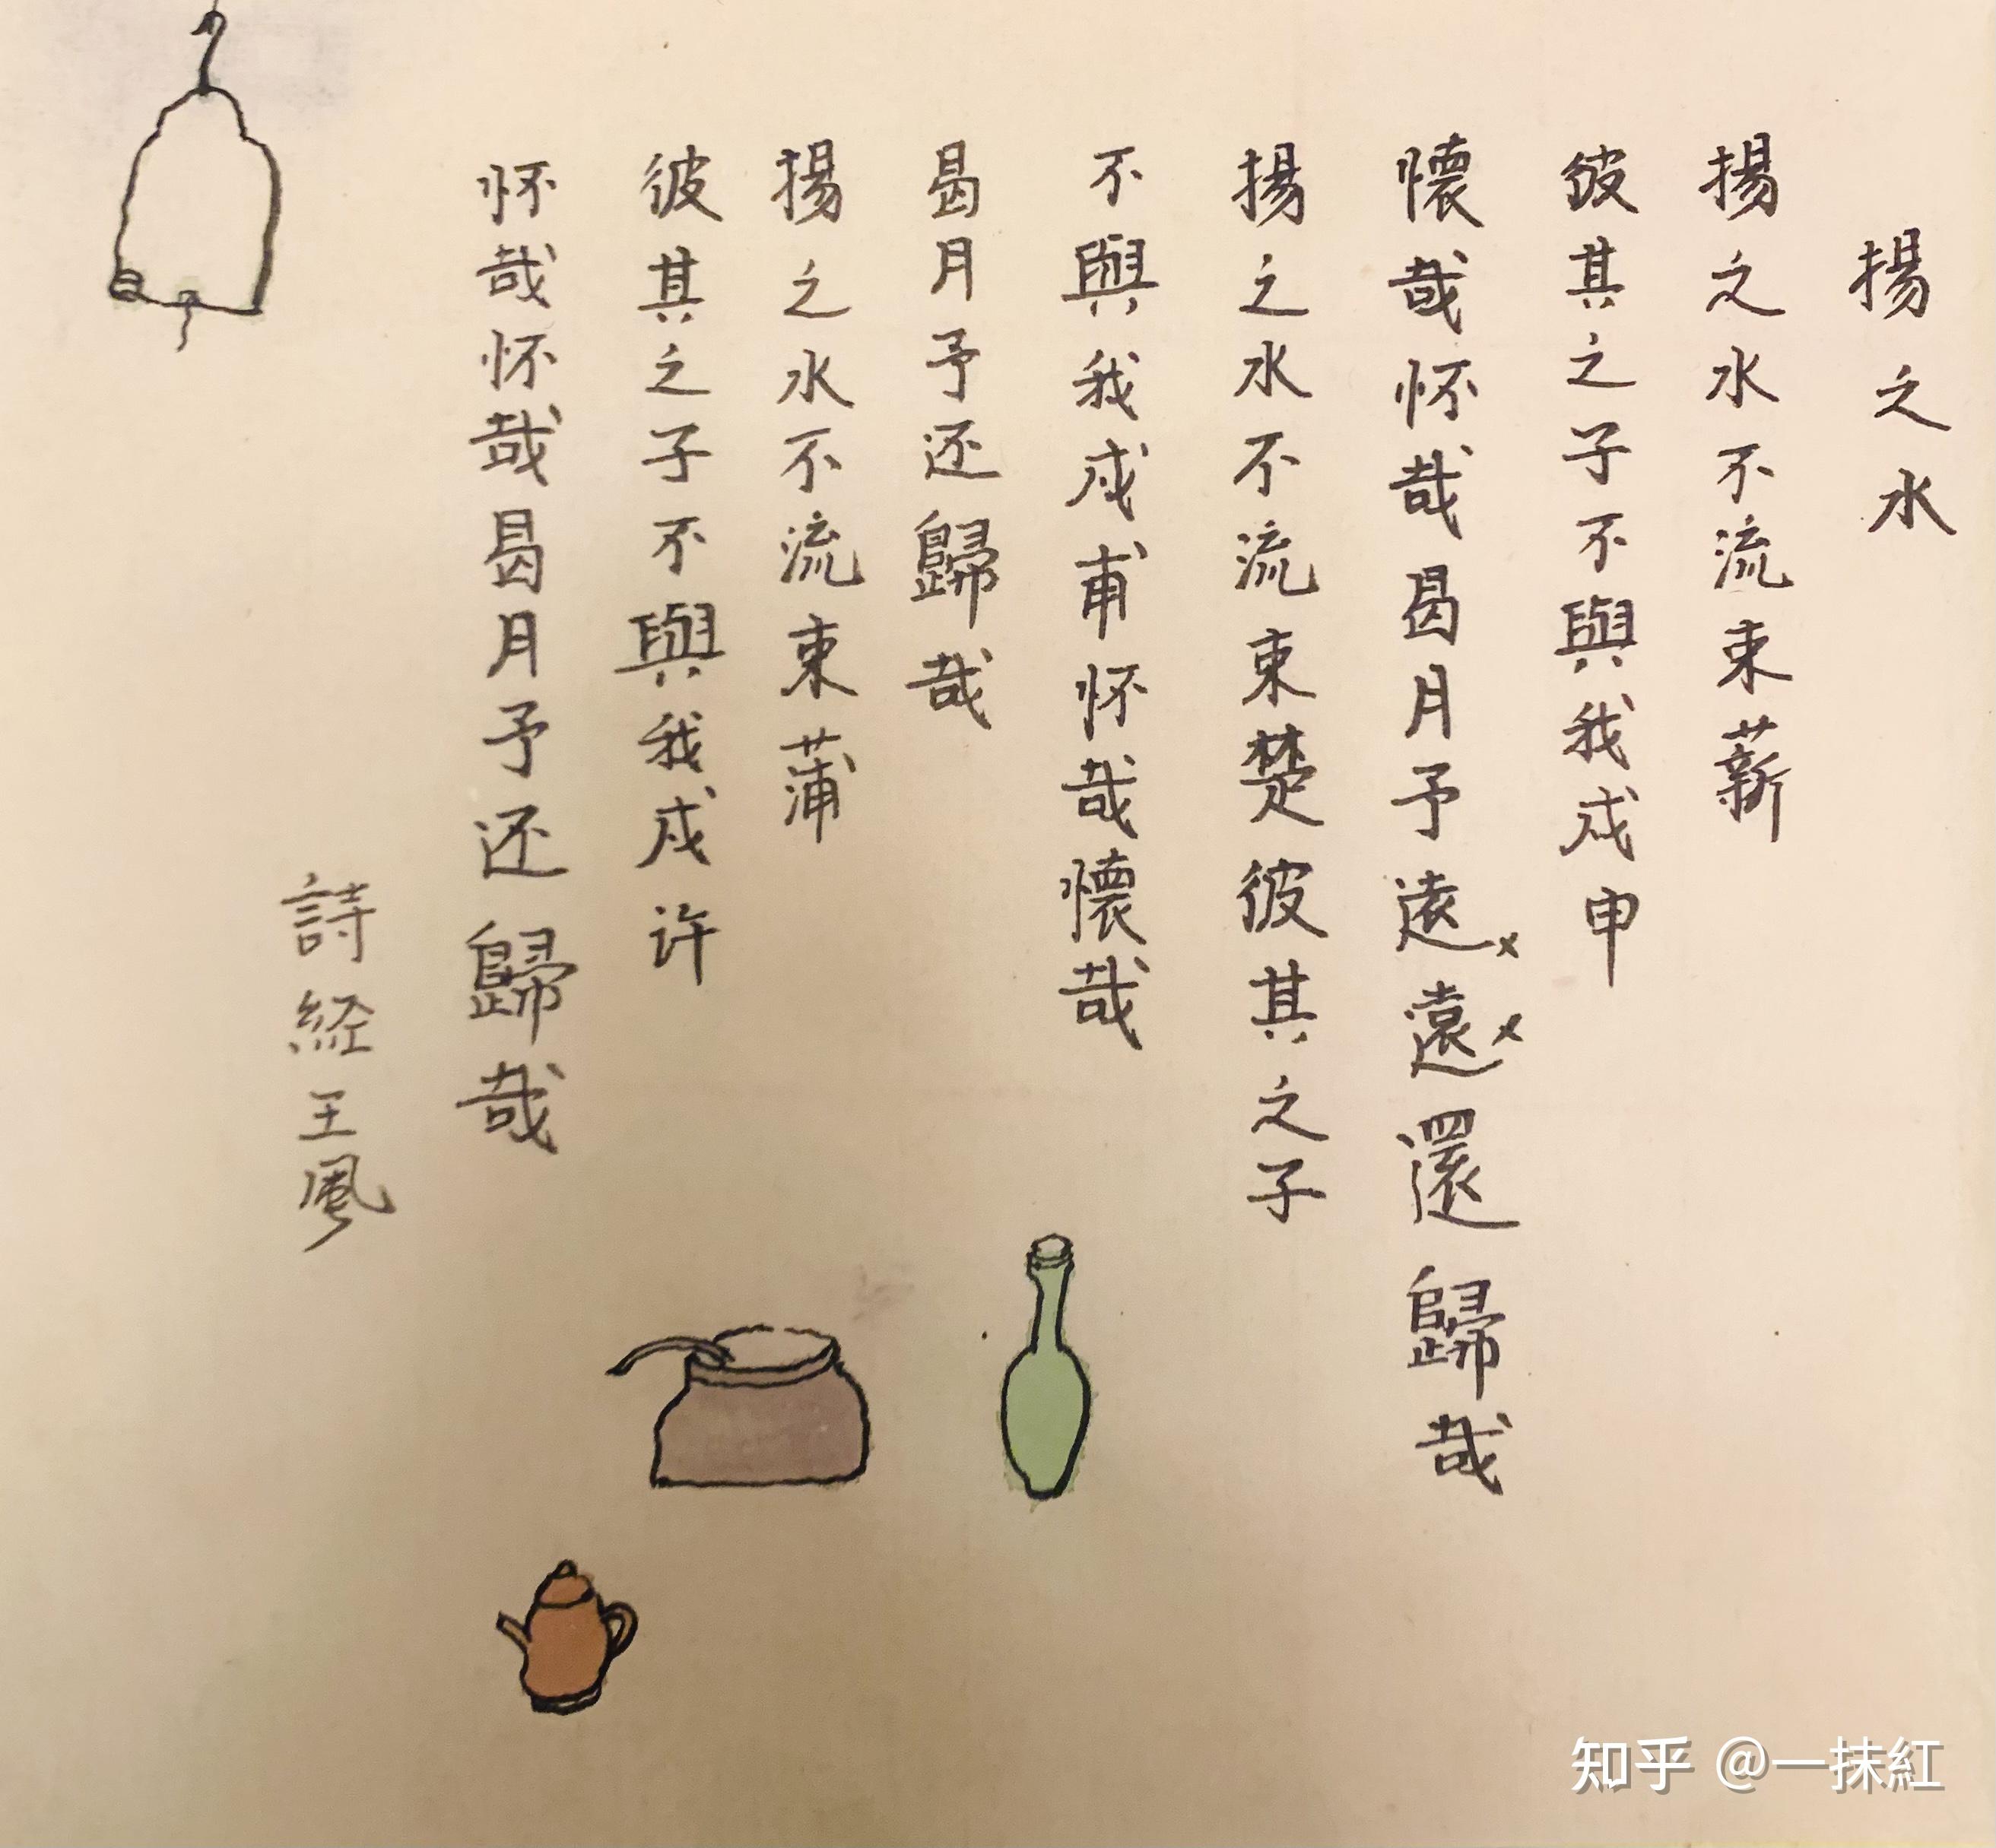 揚之水
揚之水不流束薪
彼其之子不與我戍申
懷哉怀哉曷月予逺遠還歸哉
揚之水不流束楚彼其之子
不與我戍甫怀哉懷哉
曷月予还歸哉
揚之水不流束蒲
彼其之子不與我戍许
怀哉怀哉曷月予还歸哉
詩経王風
知乎 @一抹紅